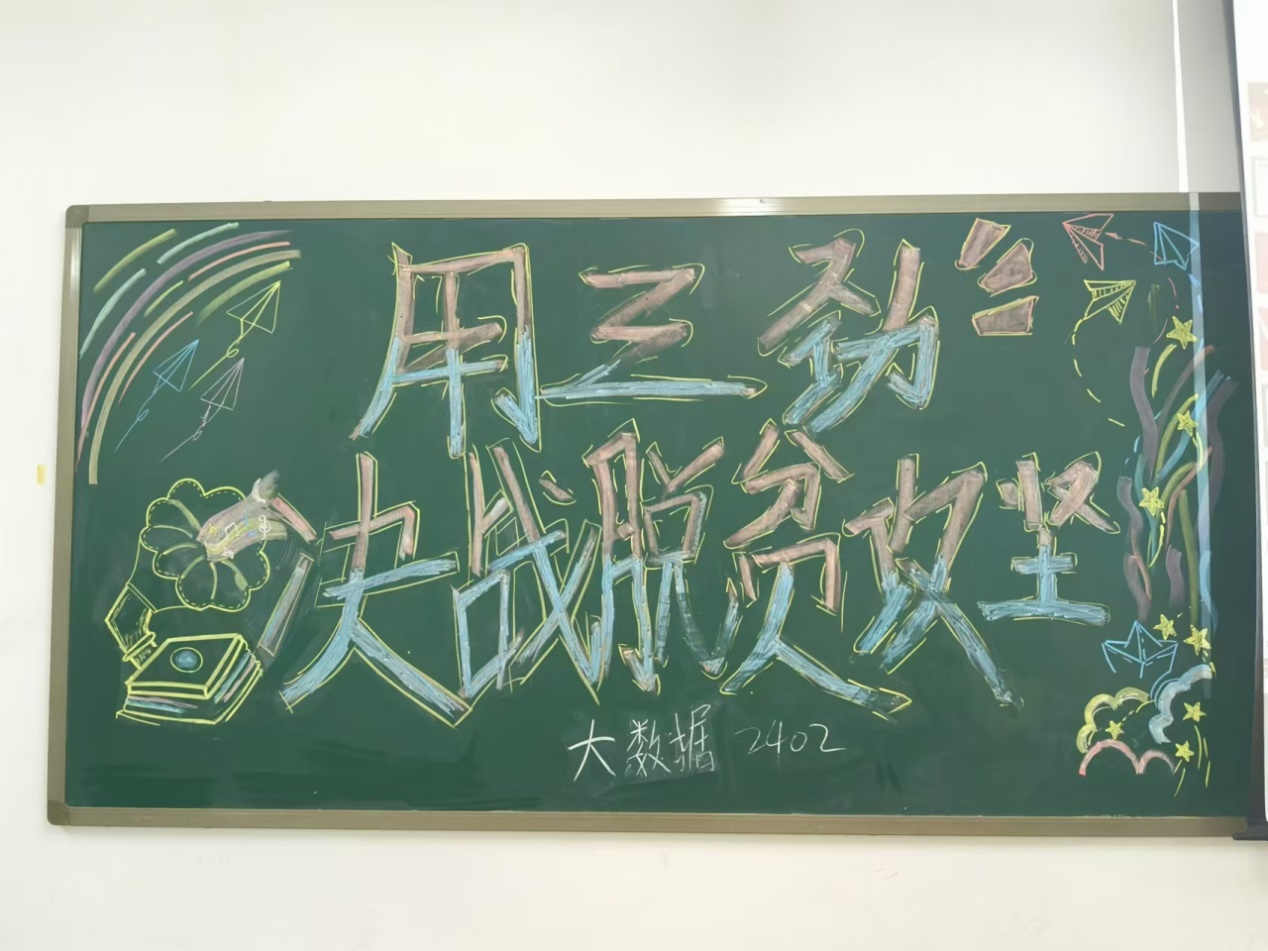 用三劲
决战脱贫攻坚
大数据 2402